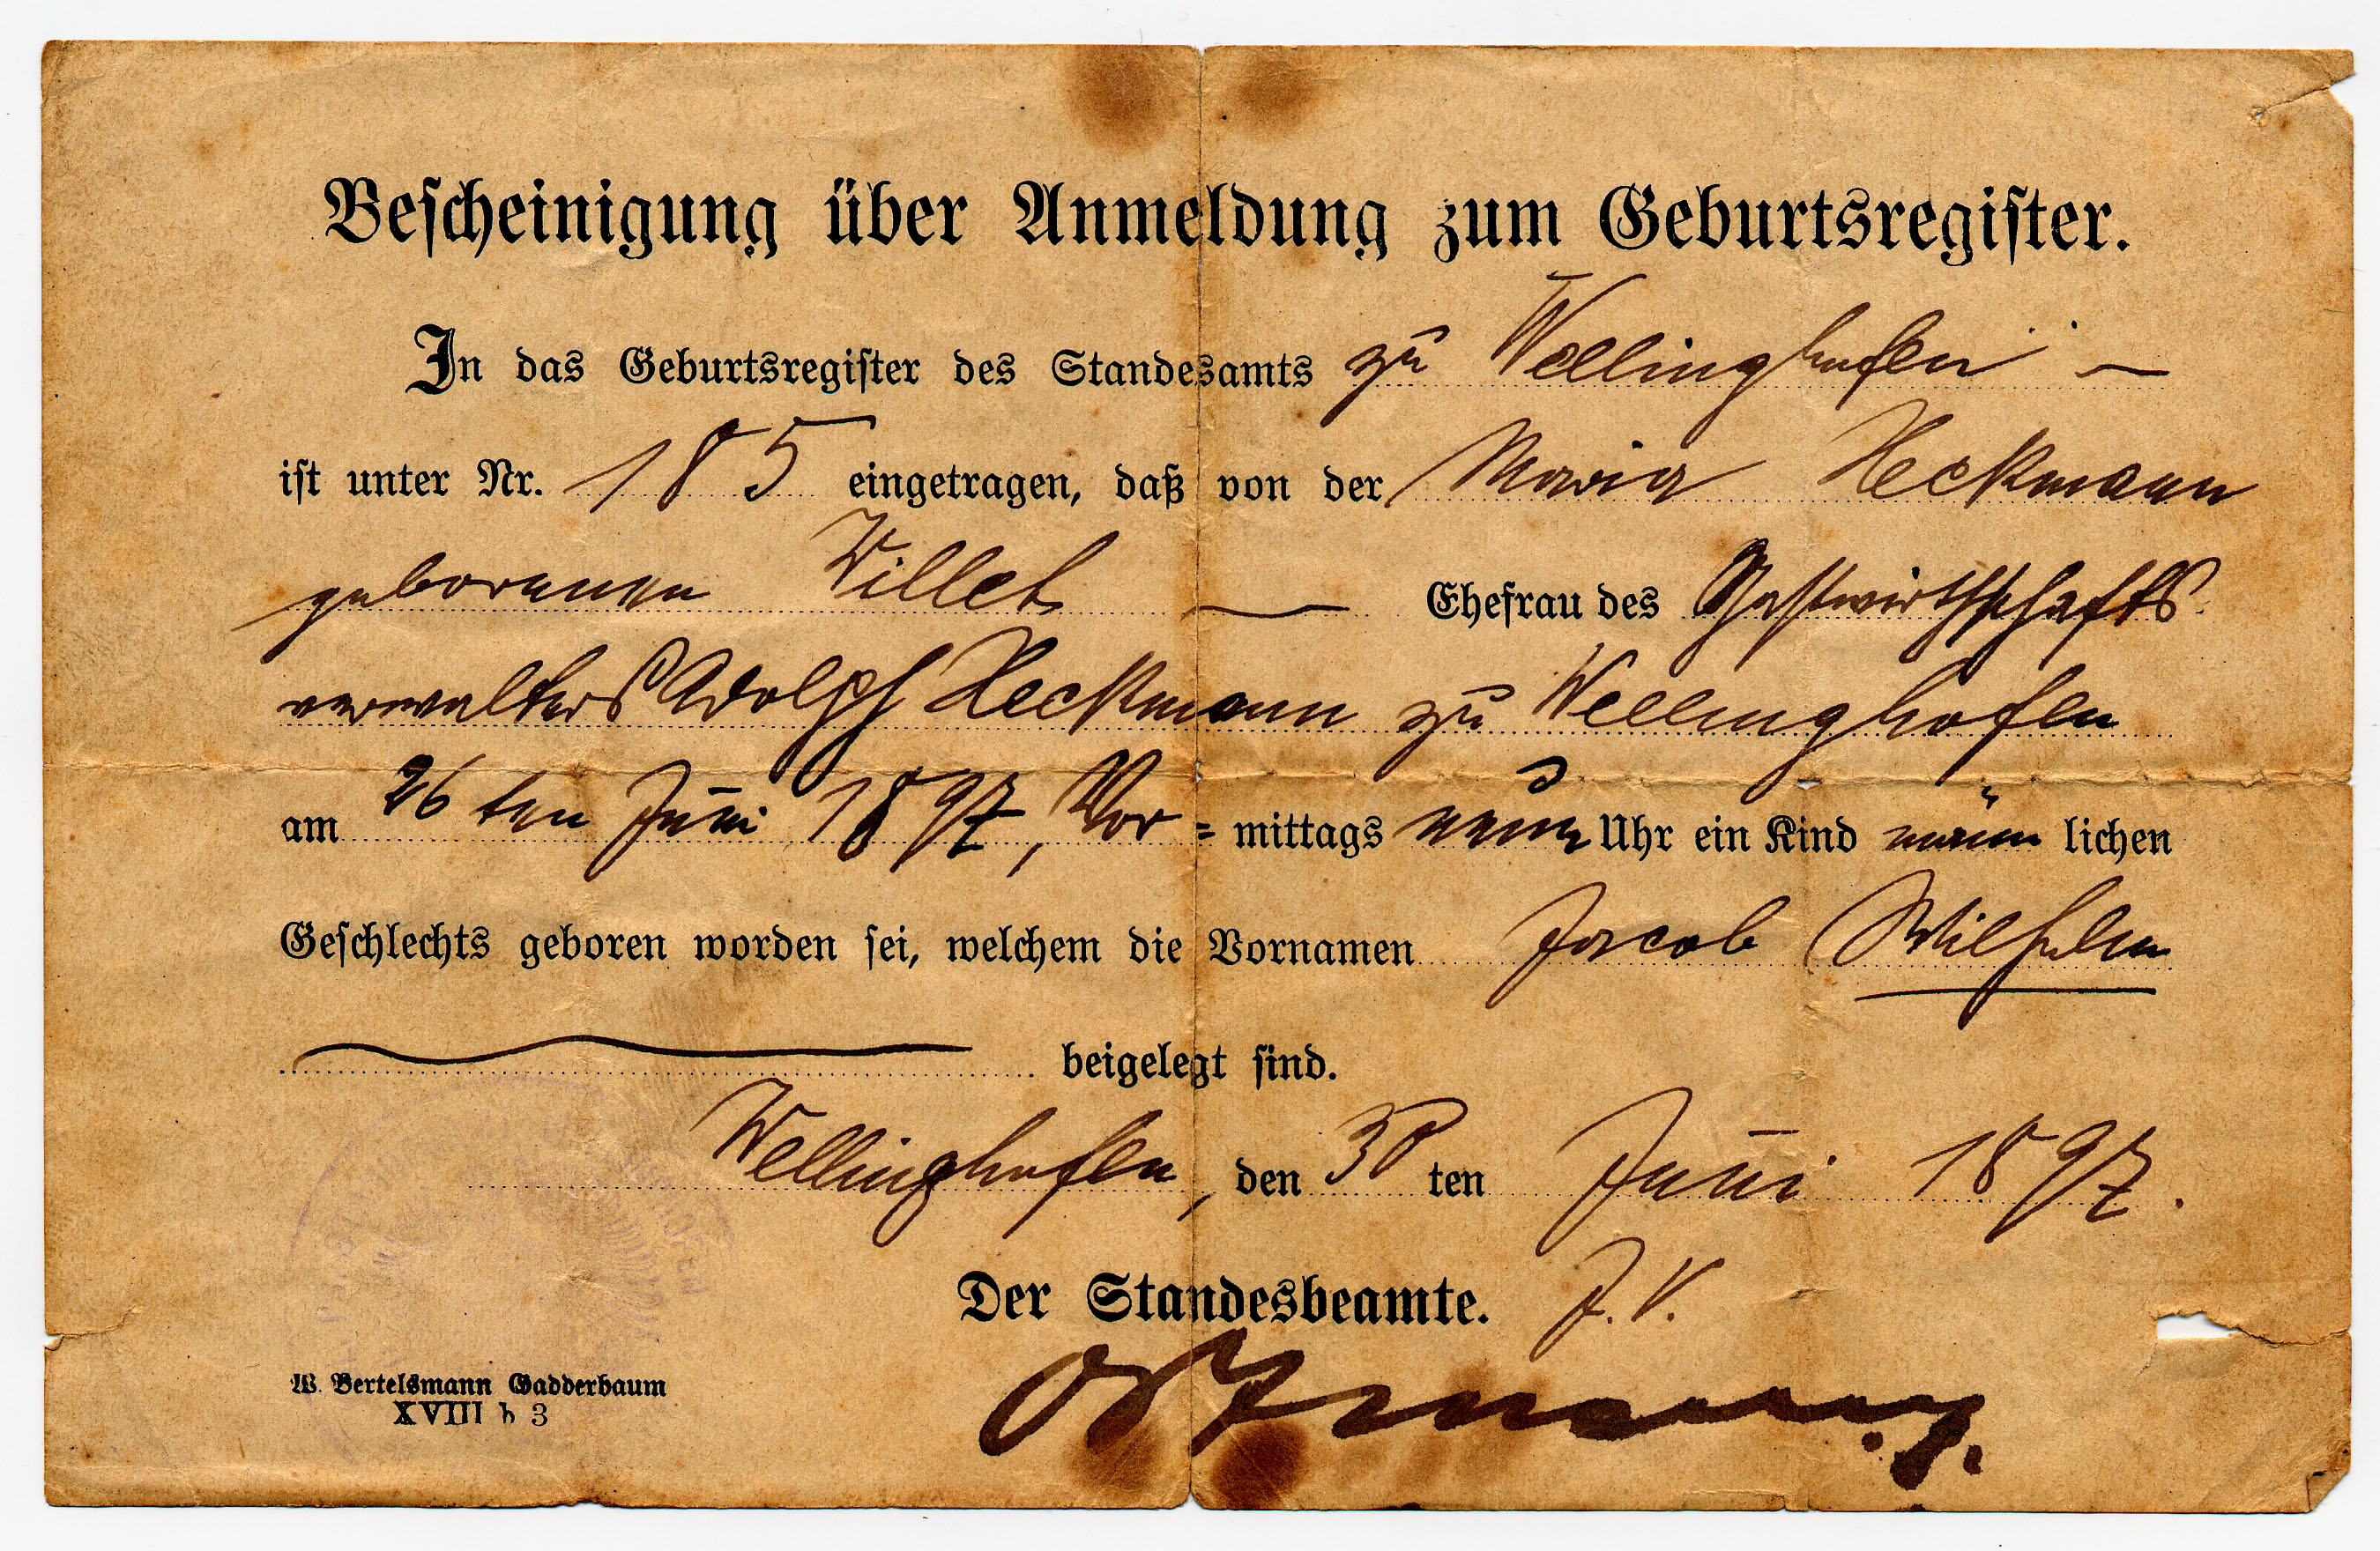 Bescheinigung über Anmeldung zum Geburtsregister.
In das Geburtsregister des Standesamts zu Wellinghofen
ist unter Nr. 185 eingetragen, daß von der Maria Heckmann
geborenen Willet Ehefrau des Gastwirthschafts
verwalters Adolph Heckmann zu Wellinghofen
am 26ten Juni 1897, Vor = mittags neun Uhr ein Kind männ lichen
Geschlechts geboren worden sei, welchem die Vornamen Jacob Wilhelm
beigelegt sind.
Wellinghofen, den 30 ten Juni 1897.
Der Standesbeamte. J. V.
W. Bertelsmann Gadderbaum
XVIII b 3